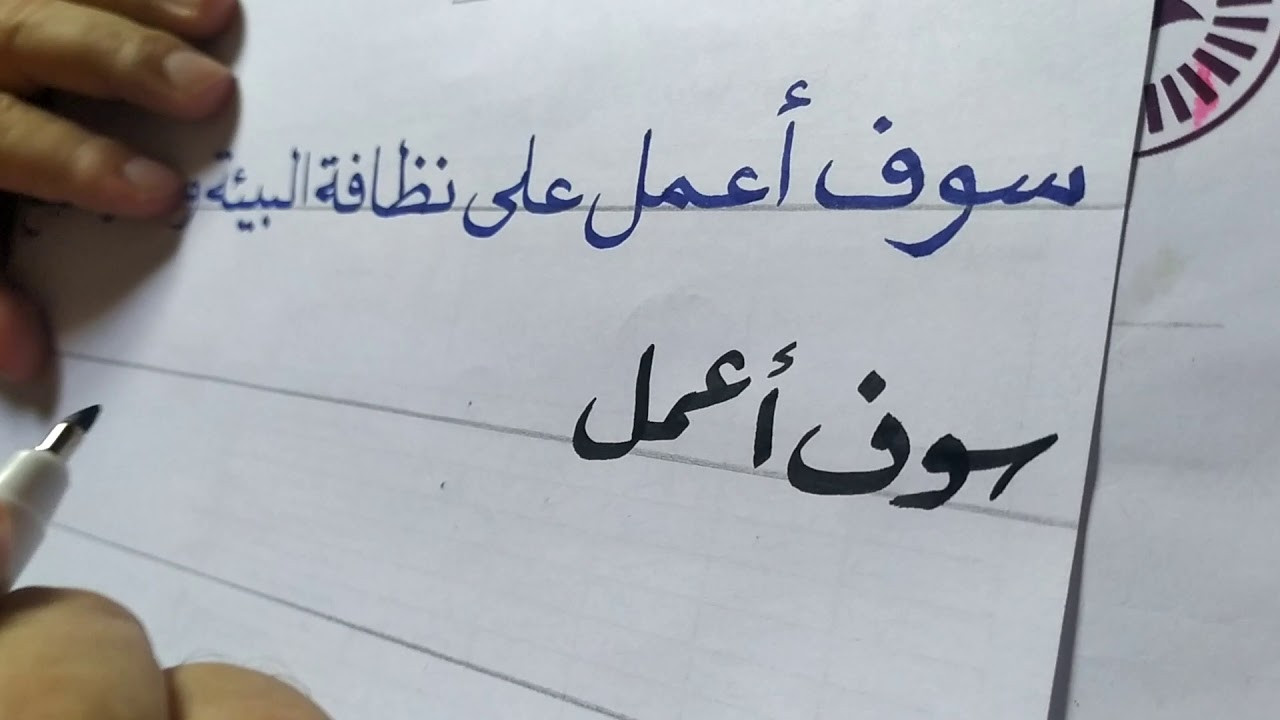 سوف أعمل على نظافة البيئة
سوف أعمل